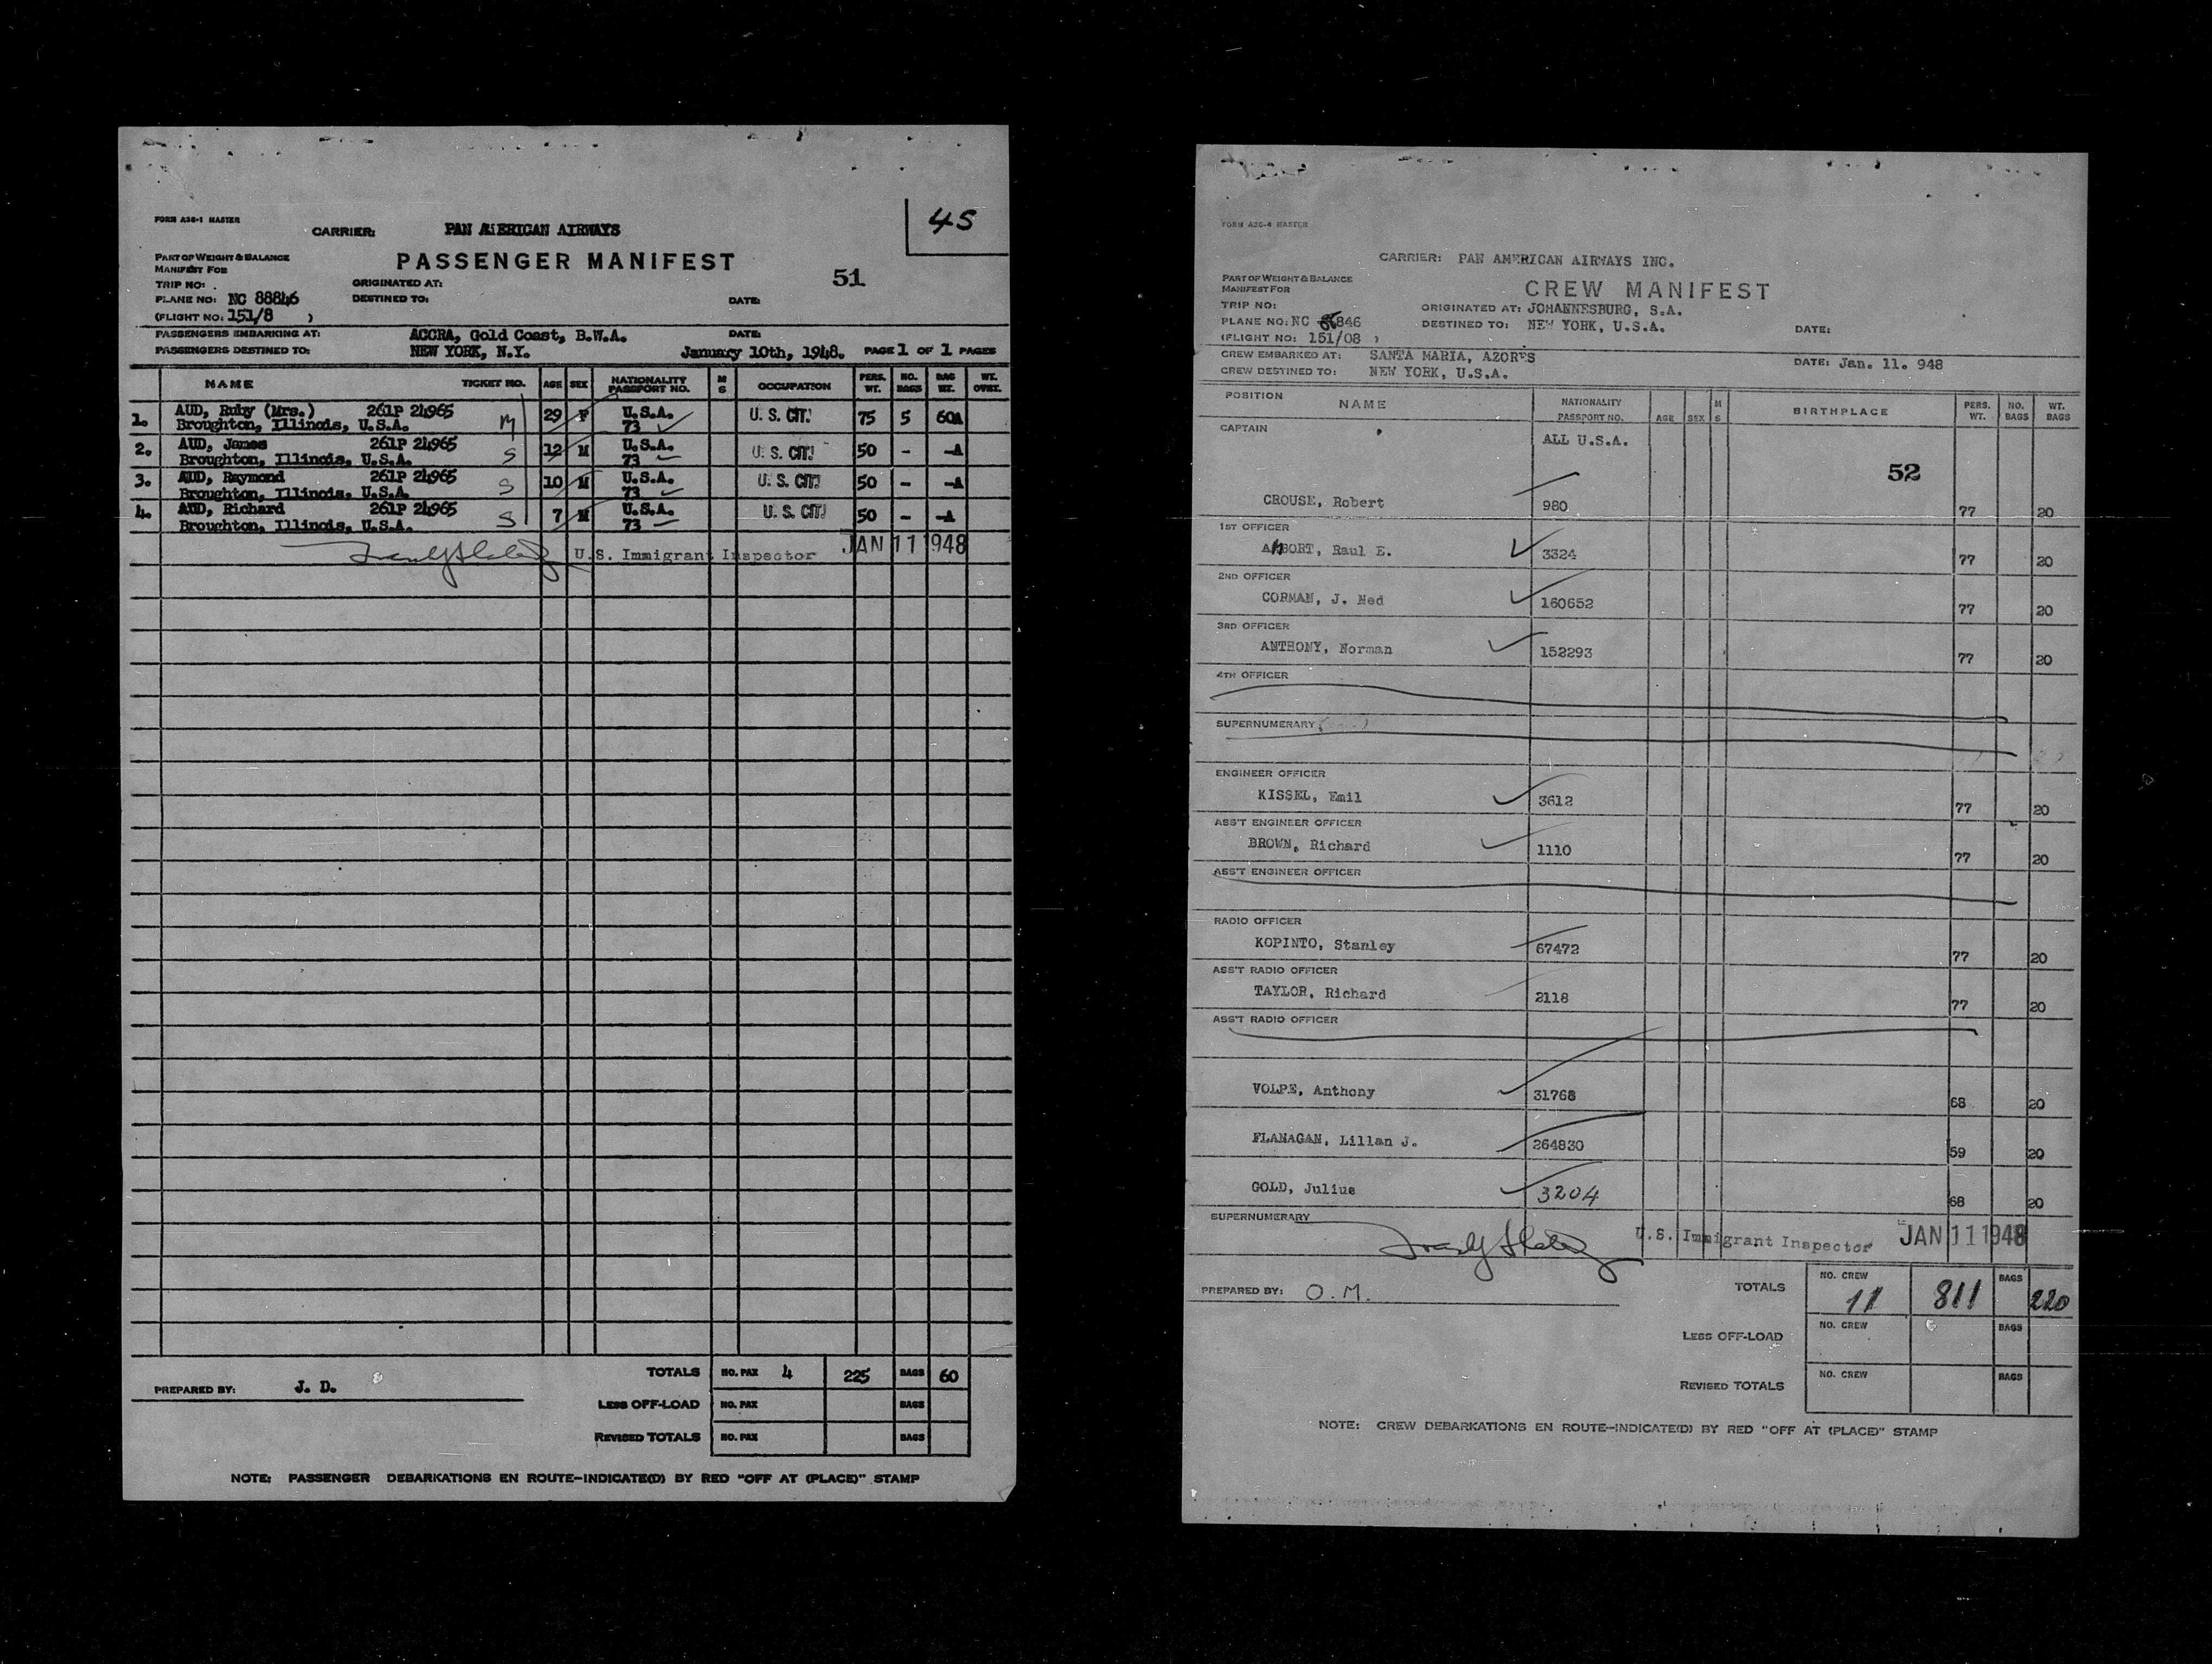 45
FORM A36-1 MASTER
CARRIER: PAN AMERICAN AIRWAYS
PART OF WEIGHT & BALANCE
MANIFEST FOR
PASSENGER MANIFEST
51
TRIP NO: ORIGINATED AT:
PLANE NO: NC 88846 DESTINED TO: DATE:
(FLIGHT NO: 151/8 )
PASSENGERS EMBARKING AT: ACCRA, Gold Coast, B.W.A. DATE:
PASSENGERS DESTINED TO: NEW YORK, N.Y. January 10th, 1948. PAGE 1 OF 1 PAGES
NAME TICKET NO. AGE SEX NATIONALITY PASSPORT NO. M S OCCUPATION PERS. WT. NO. BAGS BAG WT. WT. OVRT.
1. AUD, Ruby (Mrs.) 261P 24965 M 29 F U.S.A. U. S. CIT. 75 5 60A
Broughton, Illinois, U.S.A. 73
2. AUD, James 261P 24965 S 12 M U.S.A. U. S. CIT. 50 - -A
Broughton, Illinois, U.S.A. 73
3. AUD, Raymond 261P 24965 S 10 M U.S.A. U. S. CIT. 50 - -A
Broughton, Illinois, U.S.A. 73
4. AUD, Richard 261P 24965 S 7 M U.S.A. U. S. CIT. 50 - -A
Broughton, Illinois, U.S.A. 73
U.S. Immigrant Inspector JAN 11 1948
TOTALS NO. PAX 4 225 BAGS 60
PREPARED BY: J. D.
LESS OFF-LOAD NO. PAX BAGS
REVISED TOTALS NO. PAX BAGS
NOTE: PASSENGER DEBARKATIONS EN ROUTE-INDICATE(D) BY RED "OFF AT (PLACE)" STAMP
FORM A36-4 MASTER
CARRIER: PAN AMERICAN AIRWAYS INC.
PART OF WEIGHT & BALANCE
MANIFEST FOR
CREW MANIFEST
TRIP NO: ORIGINATED AT: JOHANNESBURG, S.A.
PLANE NO: NC 88846 DESTINED TO: NEW YORK, U.S.A. DATE:
(FLIGHT NO: 151/08 )
CREW EMBARKED AT: SANTA MARIA, AZORES DATE: Jan. 11. 948
CREW DESTINED TO: NEW YORK, U.S.A.
POSITION NAME NATIONALITY PASSPORT NO. AGE SEX M S BIRTHPLACE PERS. WT. NO. BAGS WT. BAGS
CAPTAIN ALL U.S.A.
52
CROUSE, Robert 980 77 20
1ST OFFICER
Raul E. 3324 77 20
2ND OFFICER
CORMAN, J. Ned 160652 77 20
3RD OFFICER
ANTHONY, Norman 152293 77 20
4TH OFFICER
SUPERNUMERARY
ENGINEER OFFICER
KISSEL, Emil 3612 77 20
ASS'T ENGINEER OFFICER
BROWN, Richard 1110 77 20
ASS'T ENGINEER OFFICER
RADIO OFFICER
KOPINTO, Stanley 67472 77 20
ASS'T RADIO OFFICER
TAYLOR, Richard 2118 77 20
ASS'T RADIO OFFICER
VOLPE, Anthony 31768 68 20
FLANAGAN, Lillan J. 264830 59 20
GOLD, Julius 3204 68 20
SUPERNUMERARY
U.S. Immigrant Inspector JAN 11 1948
PREPARED BY: O.M. TOTALS NO. CREW 11 811 BAGS 220
LESS OFF-LOAD NO. CREW BAGS
REVISED TOTALS NO. CREW BAGS
NOTE: CREW DEBARKATIONS EN ROUTE-INDICATE(D) BY RED "OFF AT (PLACE)" STAMP